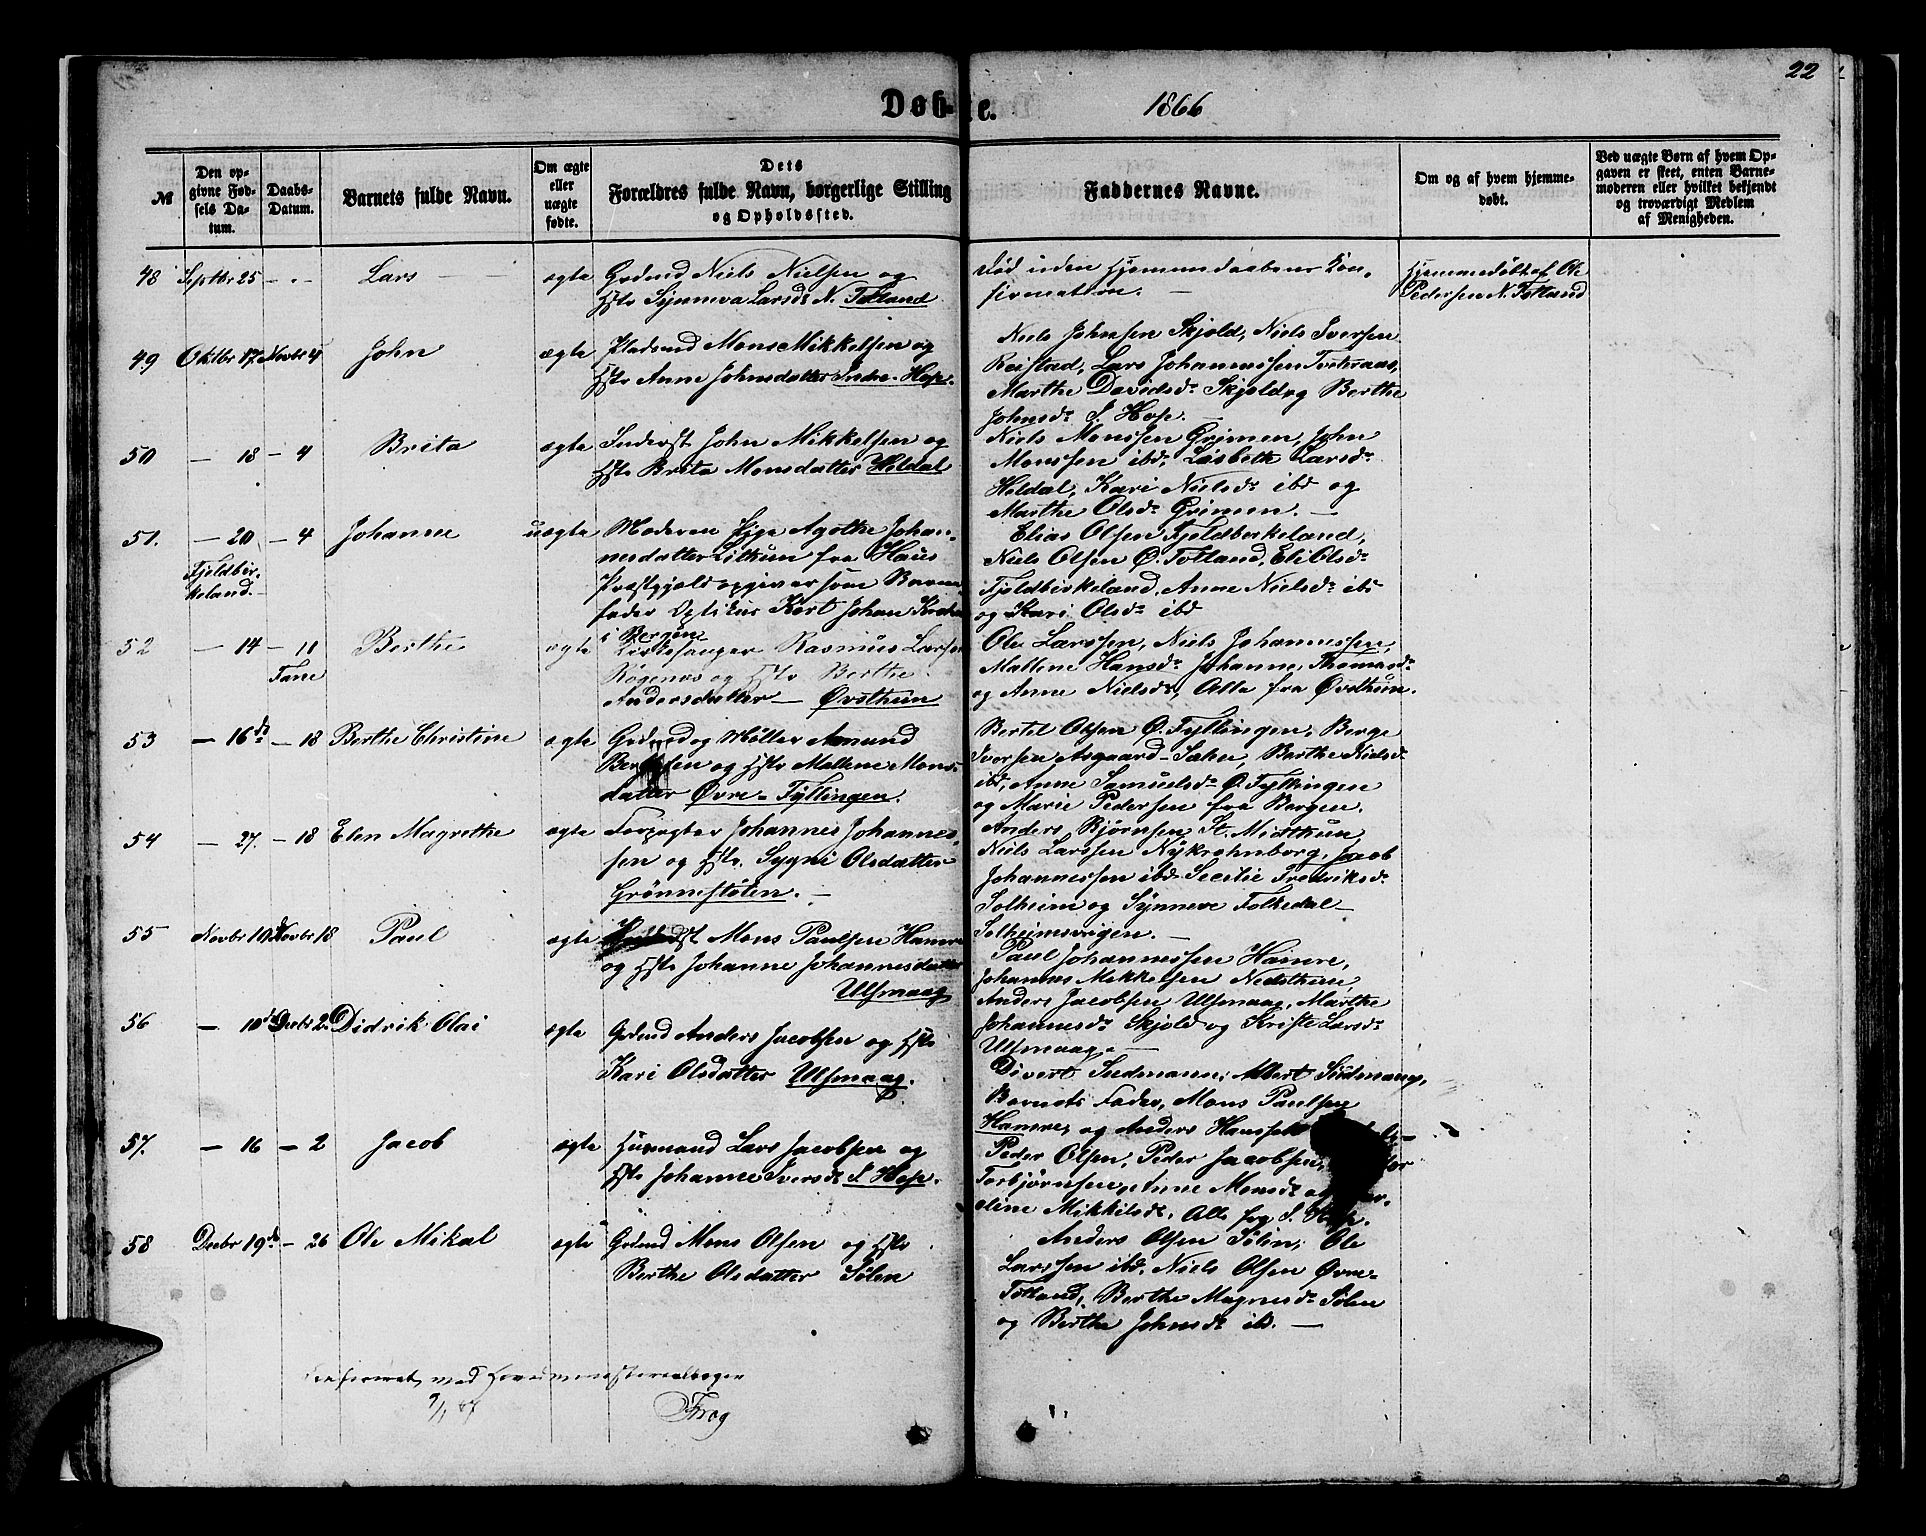 22
Døb-te. 1866
№
Den opgivne Fødsels Datum.
Daabs-Datum.
Barnets fulde Navn.
Om ægte eller uægte fødte.
Dets Forældres fulde Navn, borgerlige Stilling og Opholdssted.
Faddernes Navne.
Om og af hvem hjemmedøbt.
Ved uægte Børn af hvem Opgaven er skeet, enten Barnemoderen eller hvilket bekjendt og troværdigt Medlem af Menigheden.
48 Septbr 25 - " - Lars — ægte Grdmd Niels Nielsen og
Hstr Synneva Larsdr N. Totland
Død uden Hjemmedaabens Con-
firmation. —
Hjemmedøbt af Ole
Pedersen N. Totland
49 Oktbr 17. Novbr 4 John ægte Pladsmd Mons Mikkelsen og
Hstr Anne Johnsdatter Indre-Hop.
Niels Johnsen Skjold, Niels Iversen
Reistad, Lars Johannessen
Marthe Davidsdr Skjold og Berthe
Johnsdr I. Hop. —
50 — 18 — 4 Brita ægte Inderst John Mikkelsen og
Hstr Brita Monsdatter Heldal
Niels Monssen Grimen, John
Monssen ibd, Lisbeth Larsdr
Heldal, Kari Nielsdr ibd og
Marthe Olsdr Grimen. —
51. — 20 — 4 Johanne uægte Moderen Pige Agothe Johan-
Fjeldbir-
keland.
nesdatter Litlun fra Haus
Præstegjæld opgiver som Barne-
fader Optikus Kort Johan
i Bergen
Elias Olsen Fjeldberkeland,
Niels Olsen Ø. Totland, Eli Olsdr
Fjeldbirkeland, Anne Nielsdr ibd
og Kari Olsdr ibd
52 — 14 — 11 Berthe ægte Kirkesanger Rasmus Larsen
Fane
Røgenes og Hstr Berthe
Andersdatter — Øvsthun
Ole Larssen, Niels Johannessen,
Mallene Hansdr Johanne Thomasdr
og Anne Nielsdr, Alle fra Øvsthun.
53 — 16de — 18 Berthe Christine ægte Grdmd og Møller Amund
Bertelsen og Hstr Mallene Mons-
datter Øvre-Fyllingen.
Bertel Olsen Ø. Fyllingen, Berge
Iversen Asgaard-Sæhn, Berthe Nielsdr
ibd, Anne Samuelsdr Ø. Fyllingen
og Marie Pedersen fra Bergen.
54 — 27. — 18 Elen Magrethe ægte Forpagter Johannes Johannes-
sen og Hstr. Sygni Olsdatter
Grønnestølen. —
Anders Bjørnsen St. Midthun
Niels Larssen Nykrohnborg, Jacob
Johannessen ibd Secilie Fredriksdr
Solheim og Synneve Folkedal
Solheimsvigen. —
55 Novbr 10de Novbr 18 Paul ægte Mons Paulsen Hamre
og Hstr Johanne Johannesdatter
Ulsmaag
Paul Johannessen Hamre,
Johannes Mikkelsen Nedsthun,
Anders Jacobsen Ulsmaag, Marthe
Johannesdr Skjold og Kriste Larsdr
Ulsmaag. —
56 — 10de Decbr 2. Didrik Olai ægte Grdmd Anders Jacobsen og Hstr
Kari Olsdatter Ulsmaag.
Divert Sudmann, Albert Sudmann,
Barnets Fader, Mons Paulsen
Hamre, og Anders
57. — 16 — 2 Jacob ægte Husmand Lars Jacobsen og
Hstr Johanne Iversdr I. Hop.
Peder Olsen, Peder Jacobsen,
Torbjørnsen, Anne Monsdr
eline Mikkelsdr. Alle fra I. Hop.
58 Decbr 19de — 26 Ole Mikal ægte Grdmd Mons Olsen og Hstr
Berthe Olsdatter Sølen
Anders Olsen Sølen, Ole
Larssen ibd, Niels Olsen Øvre-
Totland, Berthe Magnesdr Sølen
og Berthe Johnsdr ibd. —
Confereret med Hovedministerialbogen
9/1 67 Frog